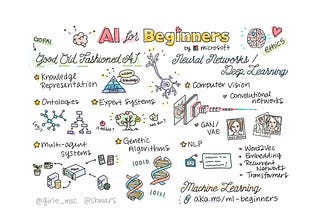 GOFAI
AI for Beginners
by microsoft
ethics
Good Old Fashioned AI
Neural Networks/
Deep Learning
Knowledge
Representation
Computer Vision
Convolutional
networks
Ontologies
Expert Systems
GAN/
VAE
Multi-agent
systems
Genetic
Algorithms
NLP
Word2Vec
Embedding
Recurrent
Networks
Transformers
10010
01101
Machine Learning
aka.ms/ml-beginners
@girlie_mac @shwars